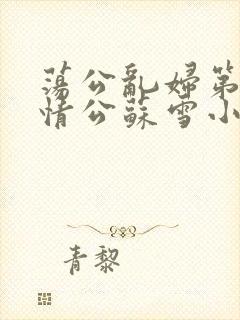 蕩公亂婦第
情公蘇雪小
青黎